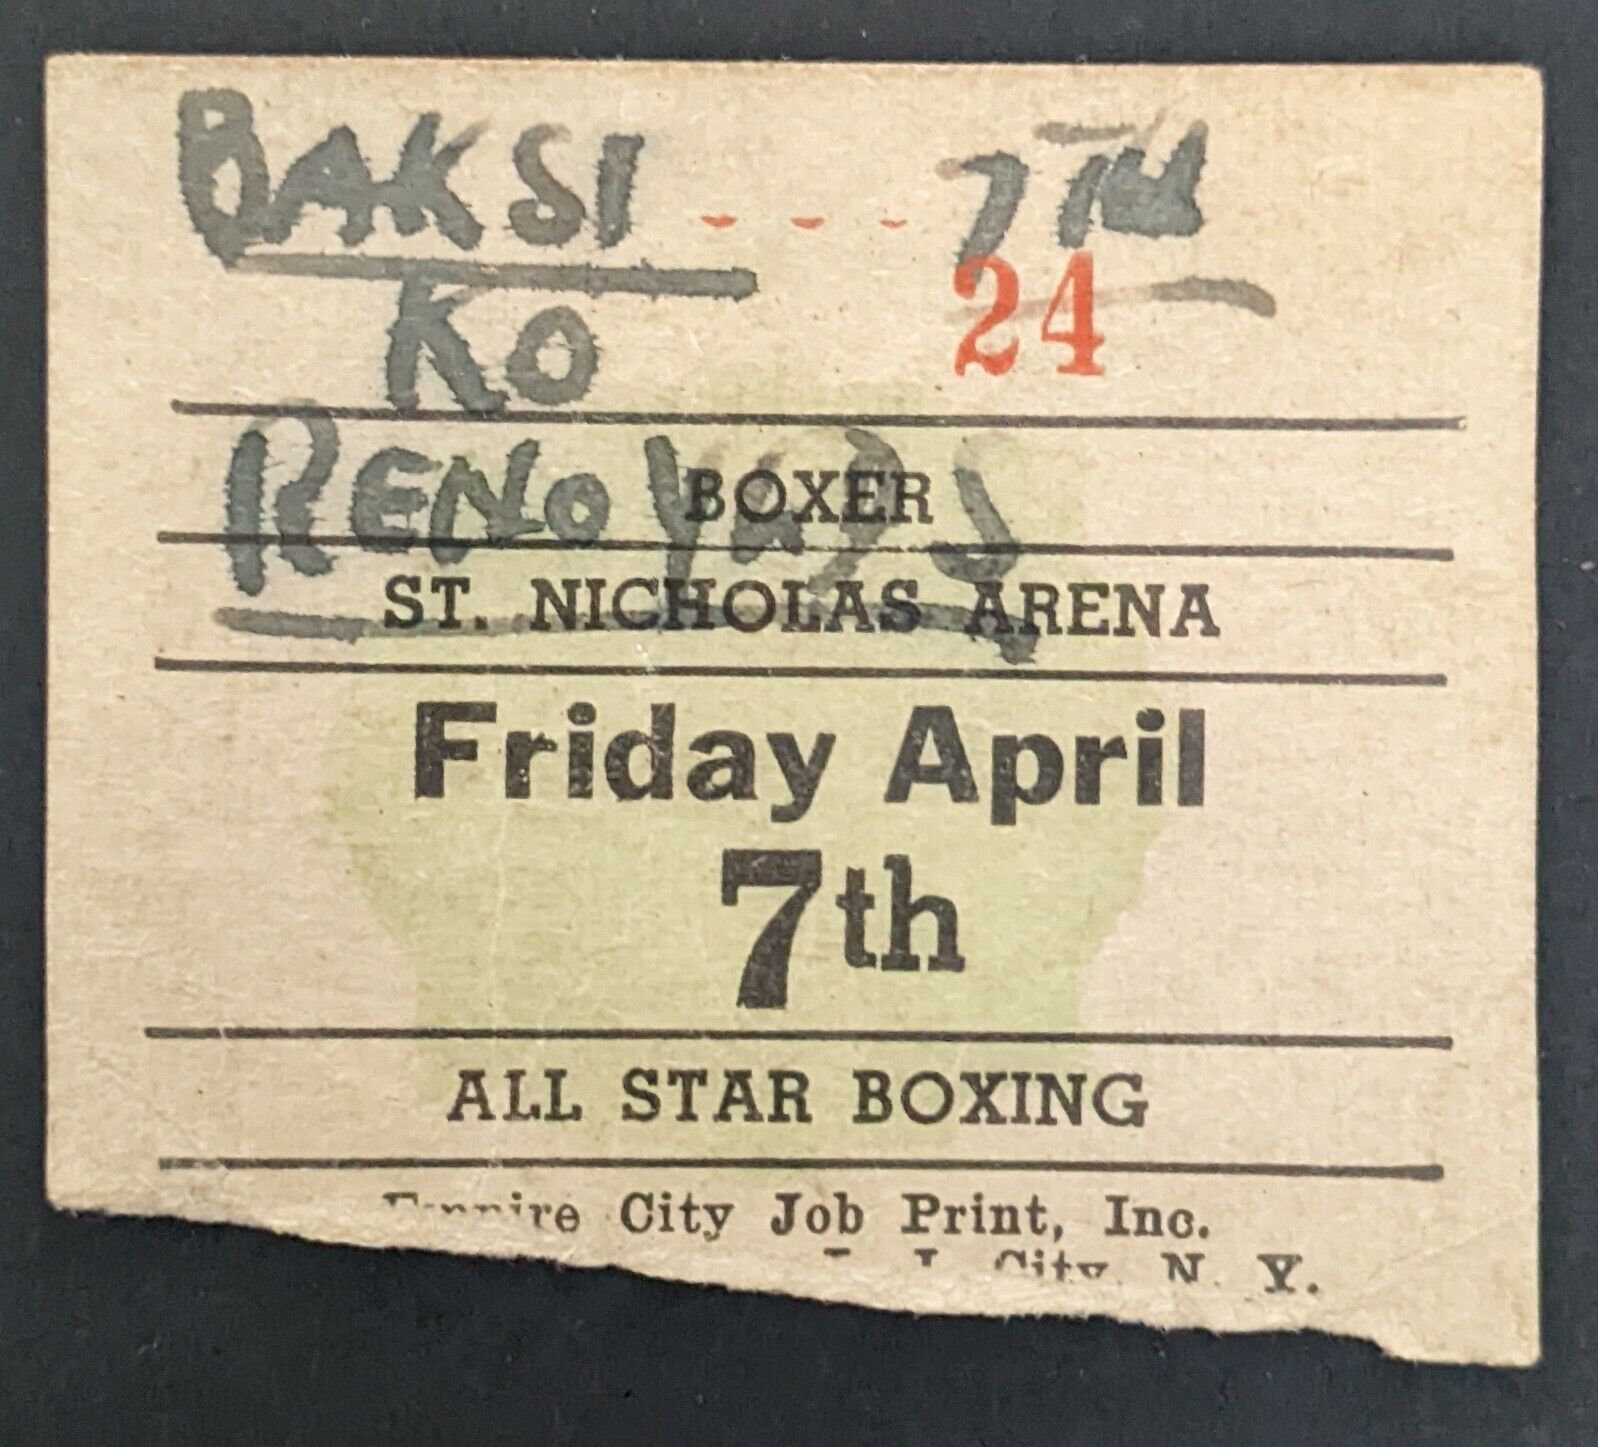 BAKSI - - - 7TH
24
KO
RENO
BOXER
ST. NICHOLAS ARENA
Friday April
7th
ALL STAR BOXING
Empire City Job Print, Inc.
L. I. City, N. Y.